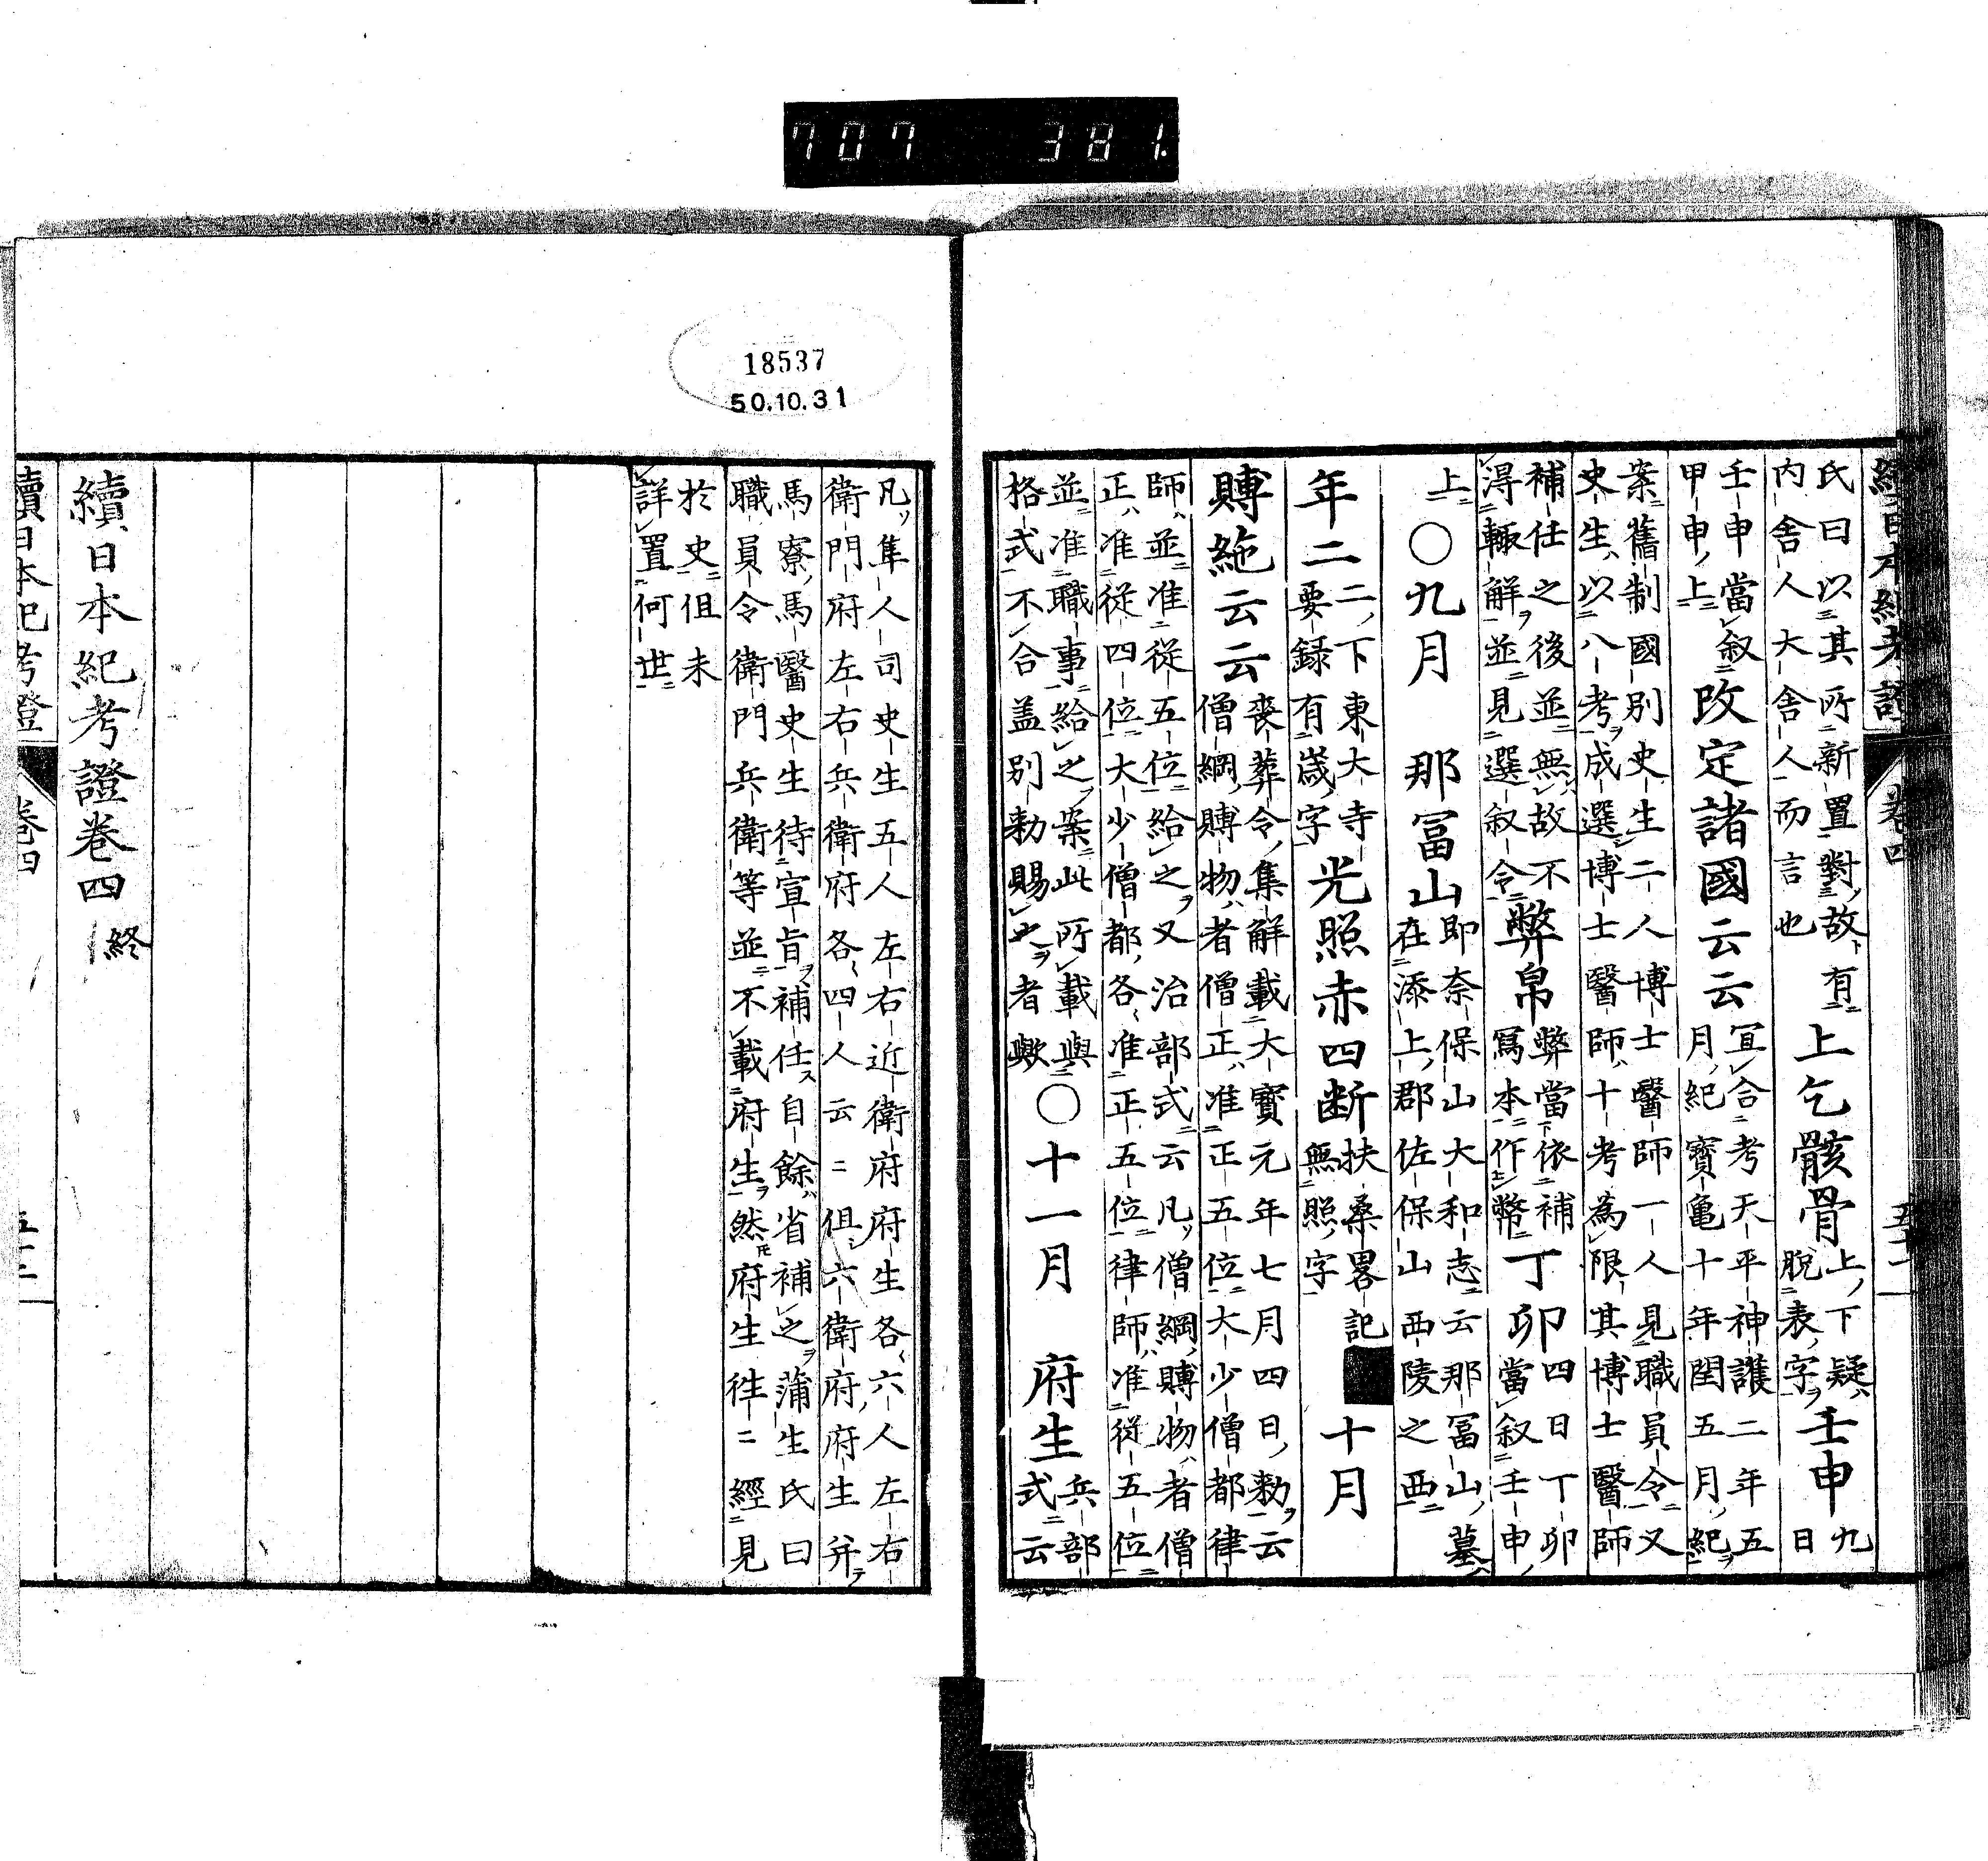 707 381.
18537
50.10.31
續日本紀考證 卷四
氏曰以其所新置對故有
内舍人大舍人而言也
上乞骸骨
上下疑
脫表字
壬申
九
日
壬申當叙
甲申上
改定諸國云云
宜合考天平神護二年五
月紀寶亀十年閏五月紀
案舊制國別史生二人博士醫師一人見職員令又
史生以八考成選博士醫師十考為限其博士醫師
補任之後並無故不
淂輙解並見選叙令
弊帛
弊當依補
冩本作幣
丁卯
四日丁卯
當叙壬申
上
〇九月 那冨山
即奈保山大和志云那冨山墓
在添上郡佐保山西陵之西
年二
二下東大寺
要録有歳字
光照赤四断
扶桑畧記
無照字
十月
賻絁云云
喪葬令集解載大寳元年七月四日勅云
僧綱賻物者僧正准正五位大少僧都律
師並准從五位給之又治部式云凡僧綱賻物者僧
正准從四位大少僧都各准正五位律師准從五位
並准職事給之案此所載與
格式不合盖別勅賜之者歟
〇十一月 府生
兵部
式云
凡隼人司史生五人左右近衛府府生各六人左右
衛門府左右兵衛府各四人云〻俱六衛府府生并
馬寮馬醫史生待宣旨補任自餘省補之蒲生氏曰
職員令衛門兵衛等並不載府生然府生徃〻經見
於史但未
詳置何世
續日本紀考證卷四 終
續日本紀考證 卷四